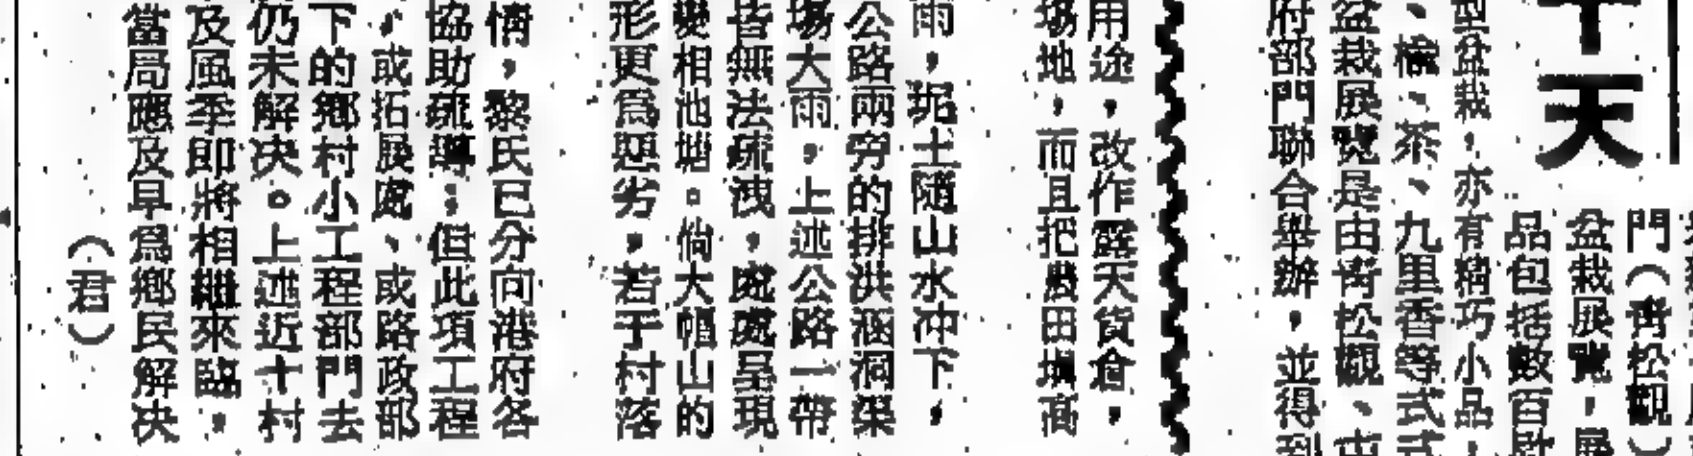 天
門（青松觀）
盆栽展覽，展
品包括數百
型盆栽，亦有精巧小品，
、榆、茶、九里香等式
盆栽展覽是由青松觀、屯
府部門聯合舉辦，並得到
用途，改作露天貨倉，
場地，而且把農田填高
雨，坭土隨山水冲下，
公路兩旁的排洪涵洞渠
場大雨，上述公路一帶
皆無法疏洩，處處呈現
變相池塘。倘大帽山的
形更爲惡劣，若干村落
情，黎氏已分向港府各
協助疏導；但此項工程
，或拓展處、或路政部
下的鄉村小工程部門去
仍未解决。上述近十村
及風季即將相繼來臨，
當局應及早爲鄉民解决
（君）